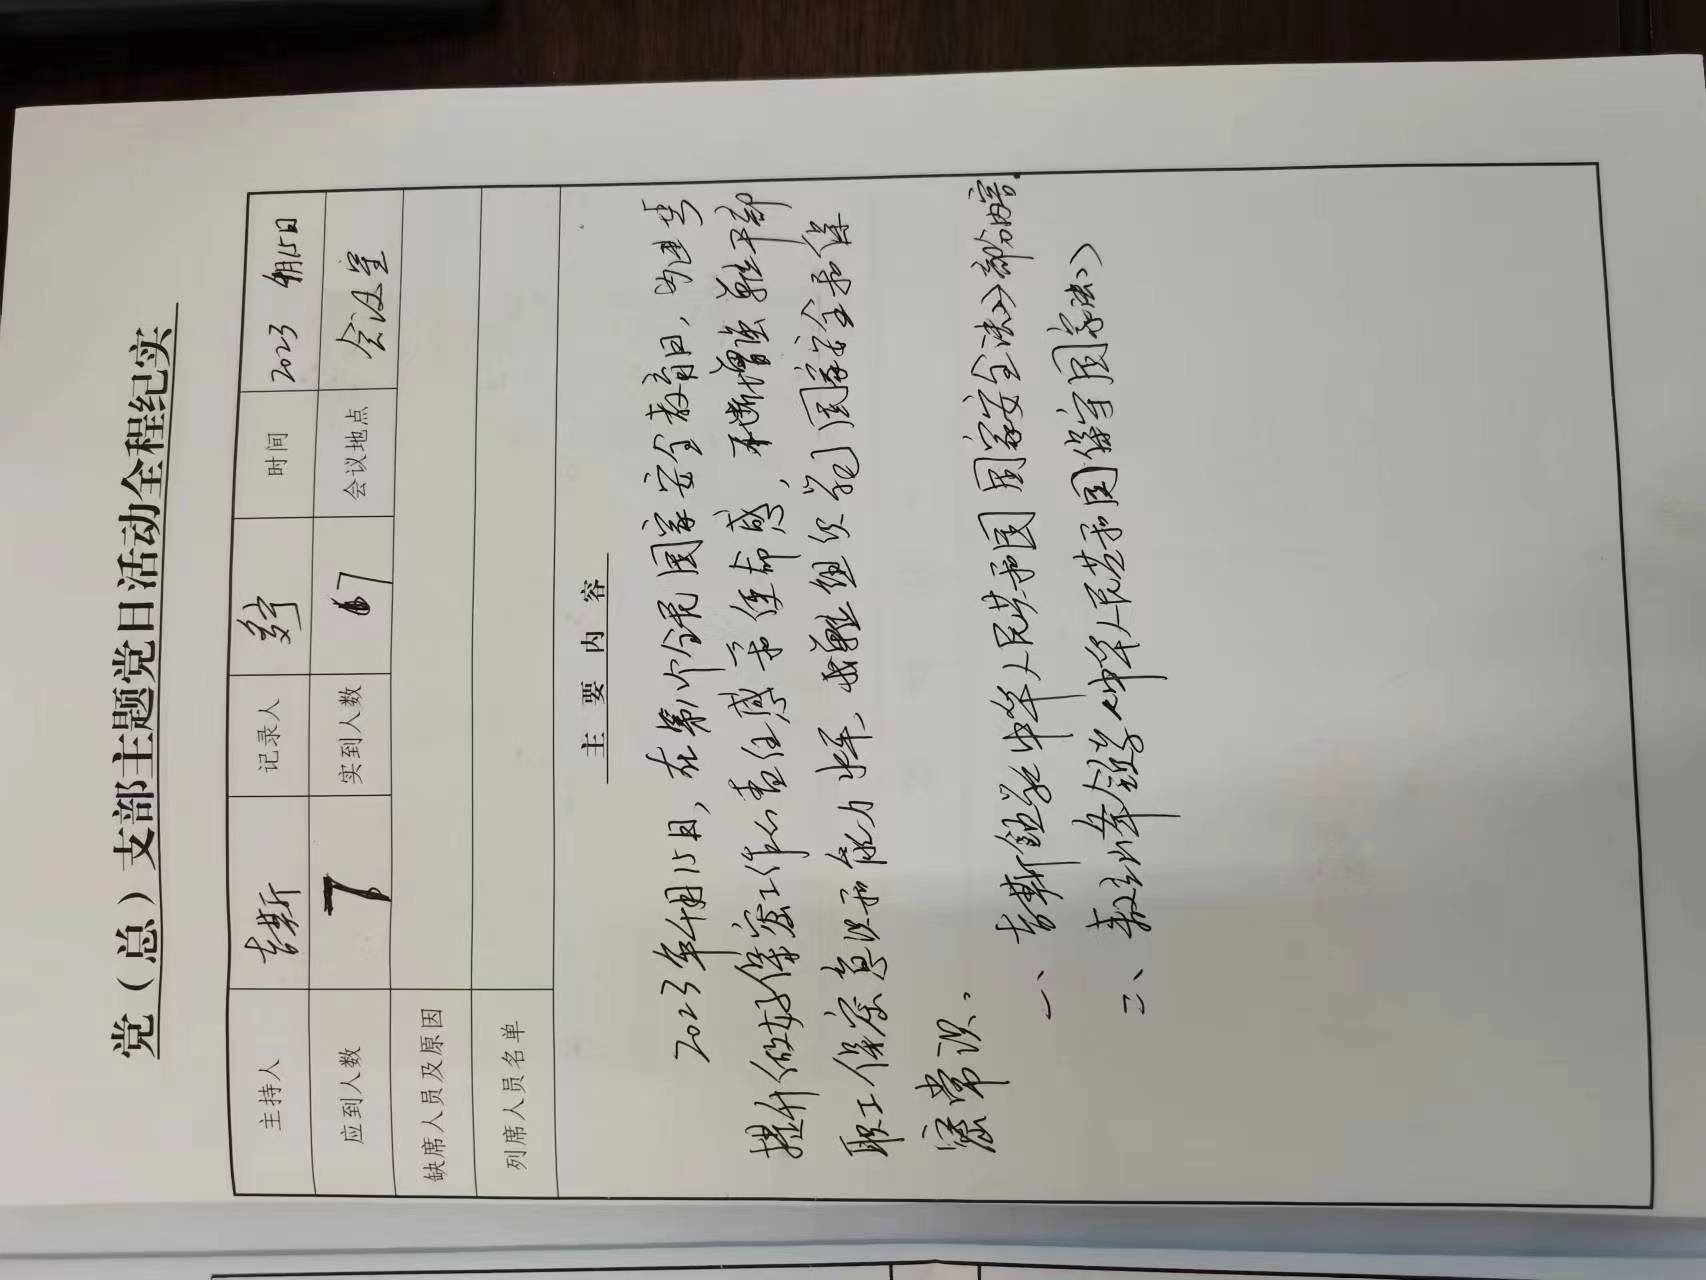 党（总）支部主题党日活动全程纪实
主持人 吉斯 记录人 时间 2023 4月15日
应到人数 7 实到人数 7 会议地点 会议室
缺席人员及原因
列席人员名单
主要内容
2023年4月15日，在第八个全民国家安全教育日，为进步
提升做好保密工作的责任感和使命感，不断增强 干部
职工保密意识和能力水平， 组织学习国家安全和保
密常识。
一、吉斯 学《中华人民共和国国家安全法》部份内容.
二、 领学《中华人民共和国保守国家法》